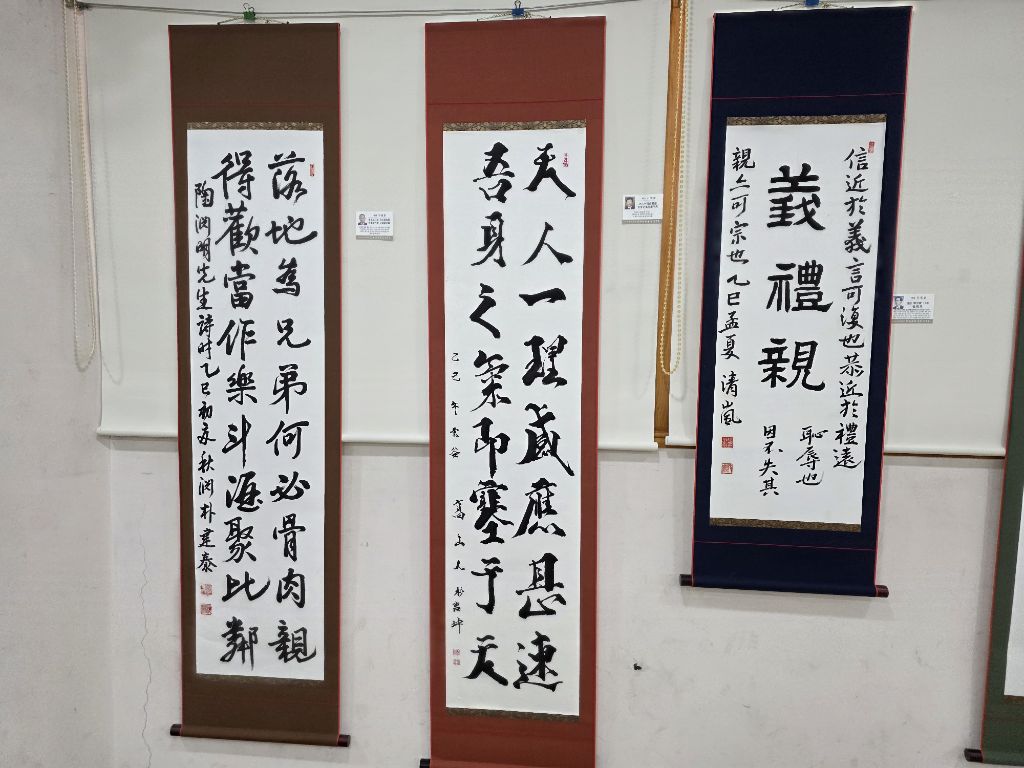 落地為兄弟何必骨肉親
得歡當作樂斗酒聚比鄰
陶淵明先生詩時乙巳初夏秋潤朴建泰
天人一理感應甚速
吾身之氣即塞于天
信近於義言可復也恭近於禮遠
恥辱也
因不失其
親亦可宗也乙巳孟夏清嵐
義禮親